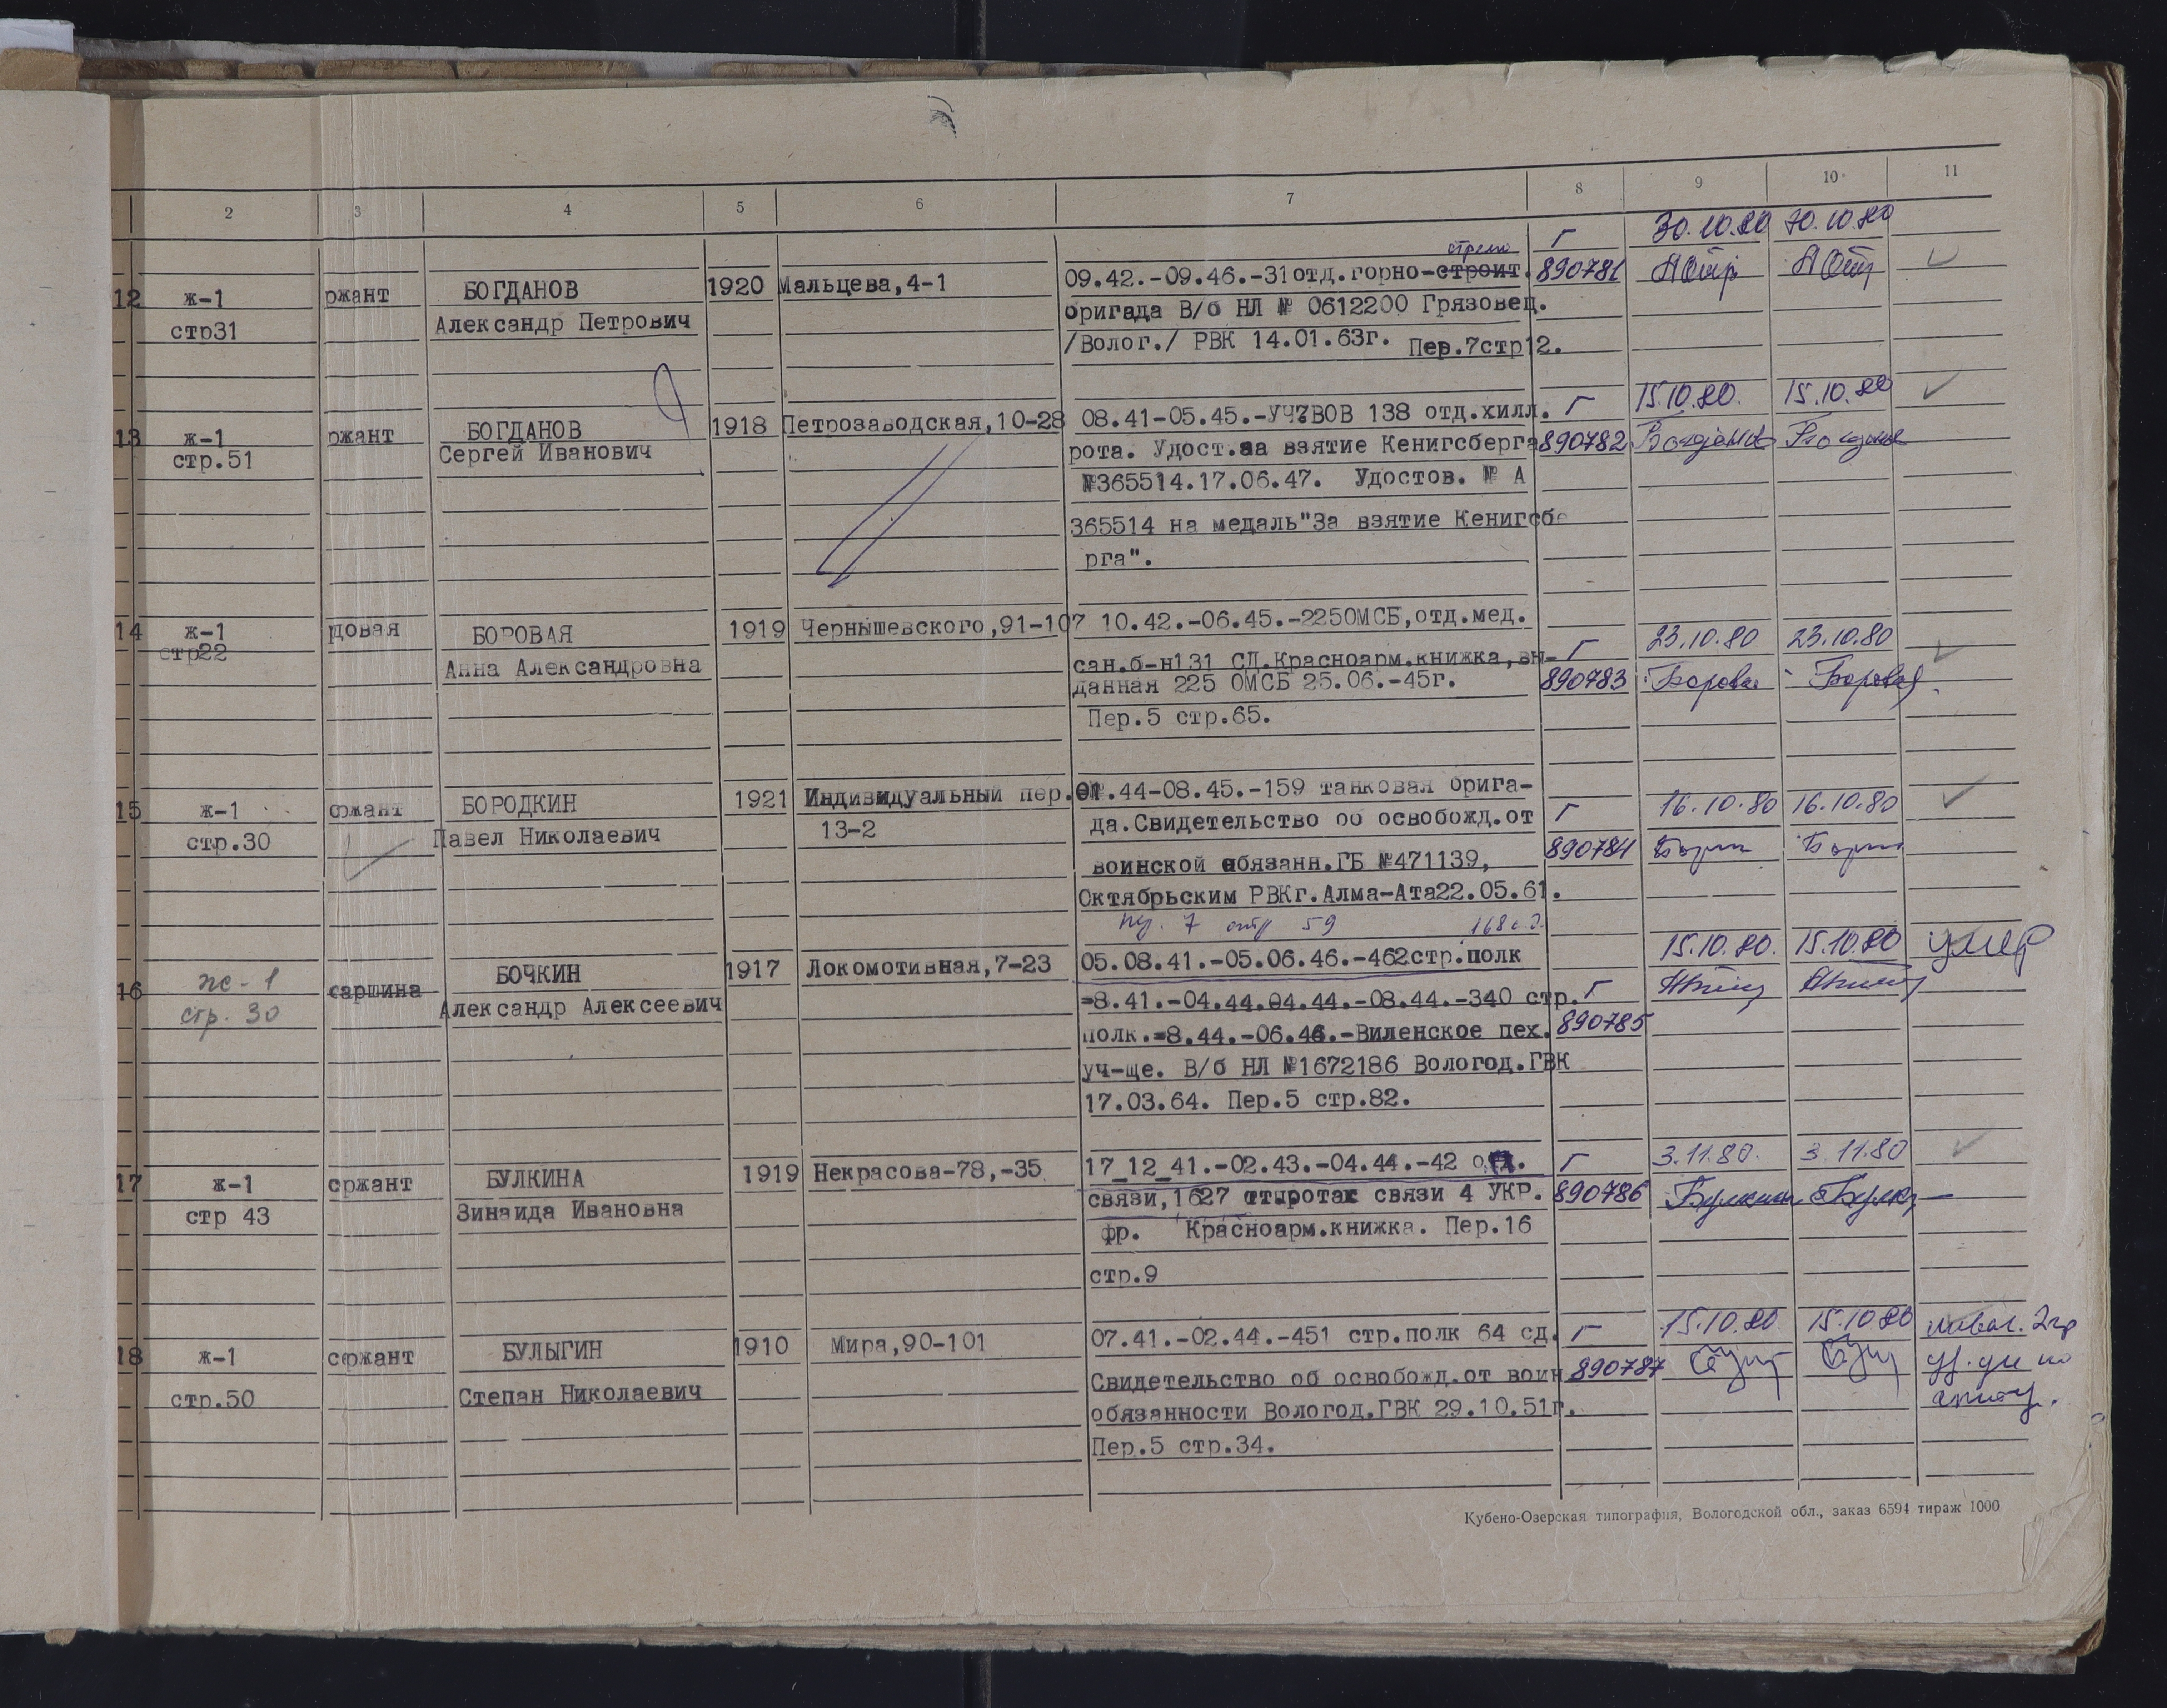 2 3 4 5 6 7 8 9 10 11
12 ж-1 ржант БОГДАНОВ 1920 Мальцева,4-1 09.42.-09.46.-31отд.горно-строит. г 30.10.80 30.10.80
стр31 Александр Петрович бригада В/б НЛ № 0612200 Грязовец. 890781
/Волог./ РВК 14.01.63г. Пер.7стр12.
13 ж-1 ржант БОГДАНОВ 1918 Петрозаводская,10-28 08.41-05.45.-УЧ.ВОВ 138 отд.хилл. г 15.10.80. 15.10.80
стр.51 Сергей Иванович рота. Удост.за взятие Кенигсберга 890782
№365514.17.06.47. Удостов. № А
365514 на медаль"За взятие Кенигсбе
рга".
14 ж-1 довая БОРОВАЯ 1919 Чернышевского,91-107 10.42.-06.45.-225ОМСБ,отд.мед. 23.10.80 23.10.80
стр22 Анна Александровна сан.б-н131 СД.Красноарм.книжка,вы- г
данная 225 ОМСБ 25.06.-45г. 890783 Борова Боровая
Пер.5 стр.65.
15 ж-1 сржант БОРОДКИН 1921 Индивидуальный пер. 01.44-08.45.-159 танковая брига- г 16.10.80 16.10.80
стр.30 Павел Николаевич 13-2 да.Свидетельство об освобожд.от
воинской обязанн.ГБ №471139, 890784
Октябрьским РВКг.Алма-Ата22.05.61.
пер. 7 стр 59 168с.д.
16 ж-1 старшина БОЧКИН 1917 Локомотивная,7-23 05.08.41.-05.06.46.-462стр.полк г 15.10.80. 15.10.80 умер
стр. 30 Александр Алексеевич -8.41.-04.44.04.44.-08.44.-340 стр.
полк.-8.44.-06.46.-Виленское пех. 890785
уч-ще. В/б НЛ №1672186 Вологод.ГВК
17.03.64. Пер.5 стр.82.
17 ж-1 сржант БУЛКИНА 1919 Некрасова-78,-35 17_12_41.-02.43.-04.44.-42 отд. г 3.11.80. 3.11.80
стр 43 Зинаида Ивановна связи,1627 связи 4 УКР. 890786
фр. Красноарм.книжка. Пер.16
стр.9
18 ж-1 сержант БУЛЫГИН 1910 Мира,90-101 07.41.-02.44.-451 стр.полк 64 сд. г 15.10.80 15.10.80
стр.50 Степан Николаевич Свидетельство об освобожд.от воин 890787
обязанности Вологод.ГВК 29.10.51г.
Пер.5 стр.34.
Кубено-Озерская типография, Вологодской обл., заказ 6594 тираж 1000